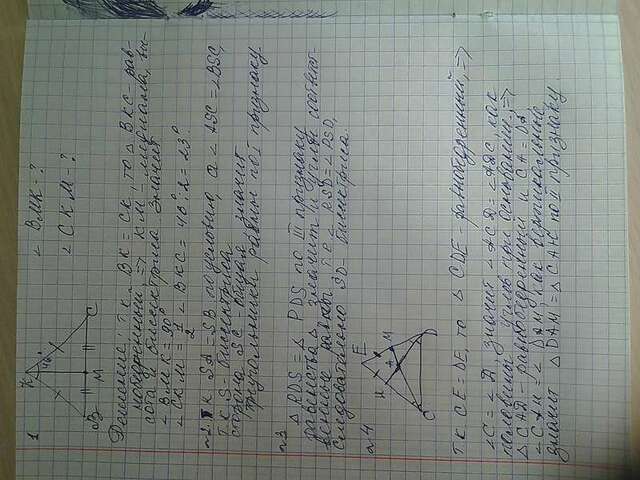 1
∠ ВМК - ?
∠ СКМ - ?
К
46°
В
М
С
Решение: т.к. ВК = СК, то △ ВКС - рав-
нобедренный => КМ - медиана, вы-
сота и биссектриса. Значит
∠ ВМК = 90°
∠ СКМ = 1/2 ∠ ВКС = 46° : 2 = 23°
№2 Тк SA = SB по условию, а ∠ ASC = ∠ BSC,
т.к S биссектриса
сторона SC - общая значит
треугольники равны по I признаку
№3 △ RDS = △ PDS по III признаку
равенства △, значит и углы соответ-
венные равны. Т е ∠ RSD = ∠ PSD,
следовательно SD - биссектриса.
№4
E
H
M
A
C
D
Тк CE = DE, то △ CDE - равнобедренный, =>
∠C = ∠D, значит ∠ACD = ∠ADC, как
половины углов при основании, =>
△ CAD - равнобедренный и CA = DA
∠CAH = ∠DAM, как вертикальные,
значит △ DAM = △ CAH по II признаку.